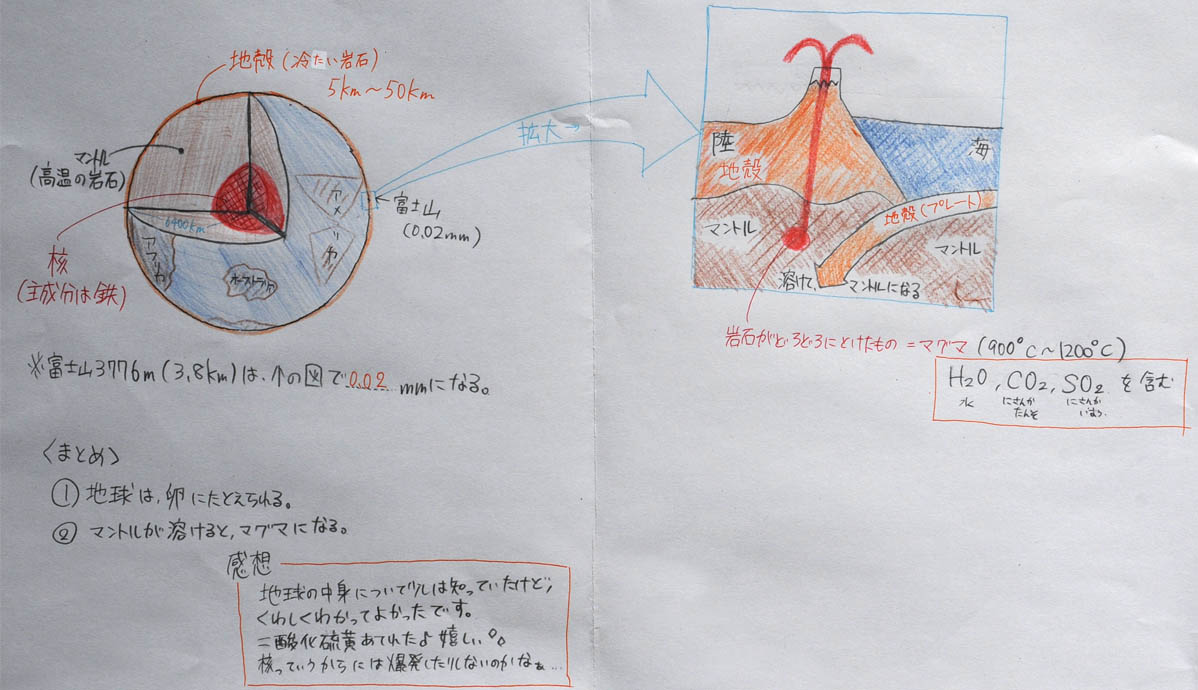 地殻(冷たい岩石)
5km〜50km
マントル
(高温の岩石)
6400km
核
(主成分は鉄)
アフリカ
オーストラリア
アメ
拡大→
←富士山
(0.02mm)
陸
地殻
海
地殻(プレート)
マントル
マントル
溶けて、マントルになる
岩石がどろどろにとけたもの=マグマ(900°C〜1200°C)
H2O, CO2, SO2 を含む
水 にさんか にさんか
たんそ いおう
※富士山3776m(3,8km)は、↑の図で0.02mmになる。
〈まとめ〉
① 地球は、卵にたとえられる。
② マントルが溶けると、マグマになる。
感想
地球の中身について少しは知っていたけど、
くわしくわかってよかったです。
二酸化硫黄あてれたよ嬉しい。
核っていうからには爆発したりしないのかなぁ…